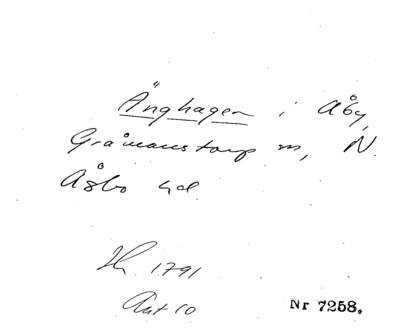 Änghagen i Åby,
Gråmanstorp sn, N.
Åsbo hd.
1791
Akt 10
Nr 7258.